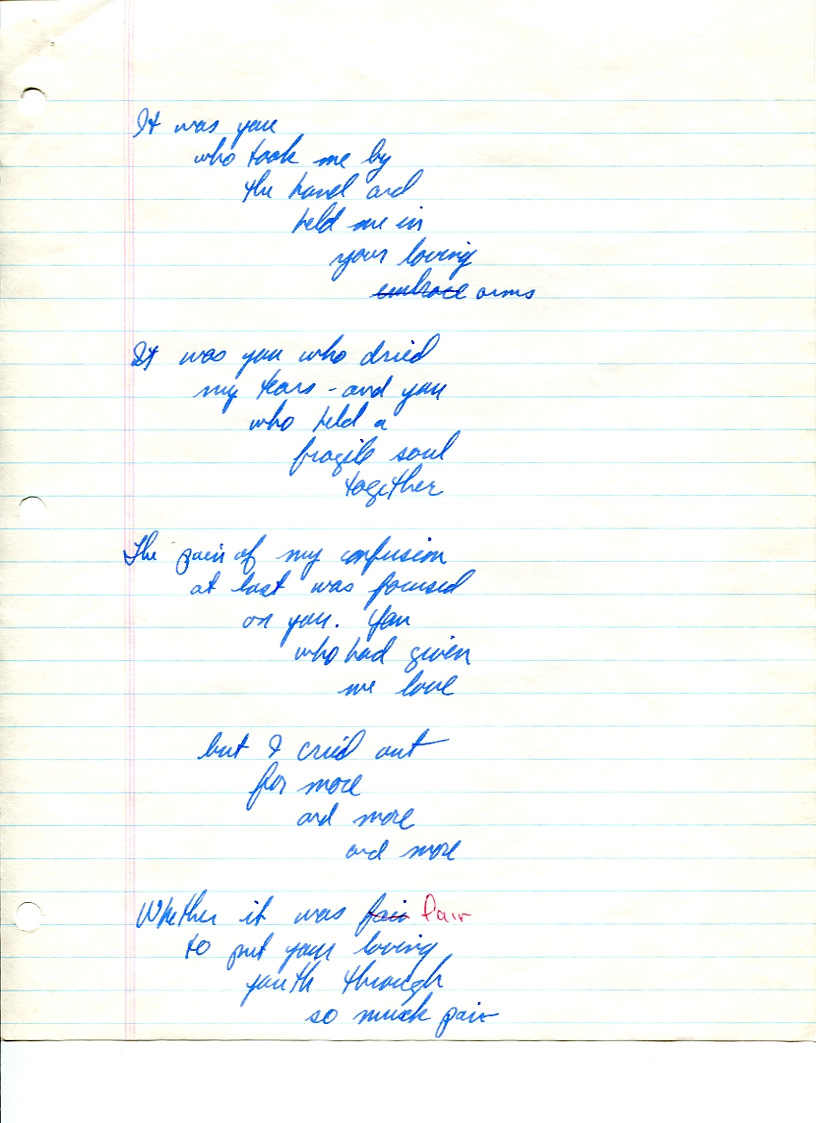 It was you
who took me by
the hand and
held me in
your loving
embrace arms
It was you who dried
my tears - and you
who held a
fragile soul
together
The pain of my confusion
at last was focused
on you. You
who had given
me love
but I cried out
for more
and more
and more
Whether it was fair fair
to put your loving
youth through
so much pain